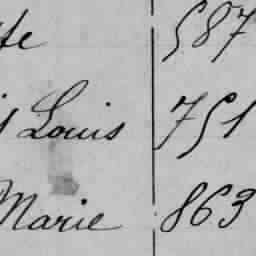 te 587
Louis 751
Marie 863